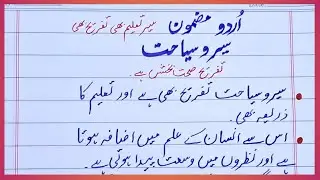 اُردو مضمون سیر تعلیم بھی تفریح بھی
سیر و سیاحت
تفریح صحت بخشتی ہے۔
سیر و سیاحت تفریح بھی ہے اور تعلیم کا
ذریعہ بھی۔
اس سے انسان کے علم میں اضافہ ہوتا
ہے اور نظروں میں وسعت پیدا ہوتی ہے۔